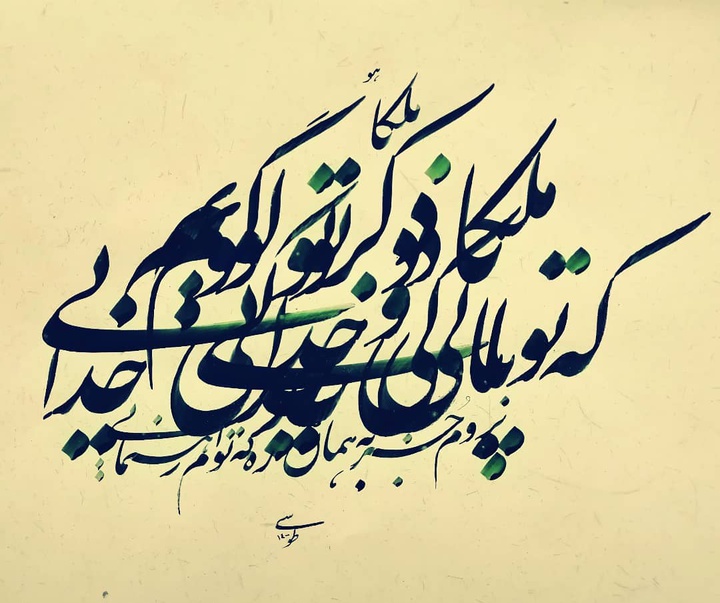 هو
ملکا
ملکا ذکر تو گویم
که تو پاکی و خدایی
نروم جز به همان ره که توام رهنمایی
طوسی